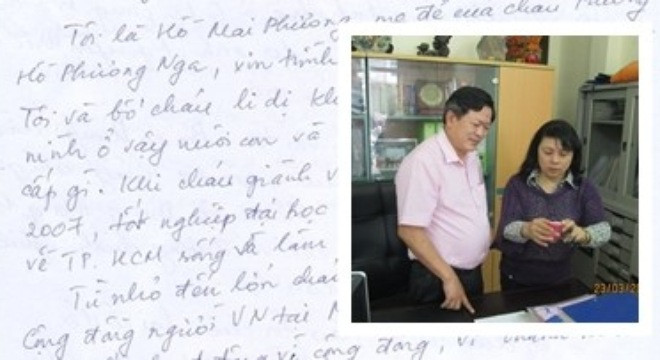 Tôi là Hồ Mai Phương, mẹ đẻ của cháu Trương
Hồ Phương Nga, xin trình
Tôi và bố cháu li dị khi
mình ở vậy nuôi con và
cấp gì. Khi cháu giành v
2007, tốt nghiệp đại học
về TP. HCM sống và làm
Từ nhỏ đến lớn cháu
cộng đồng người VN tại
về cộng đồng, vì
23/03/2